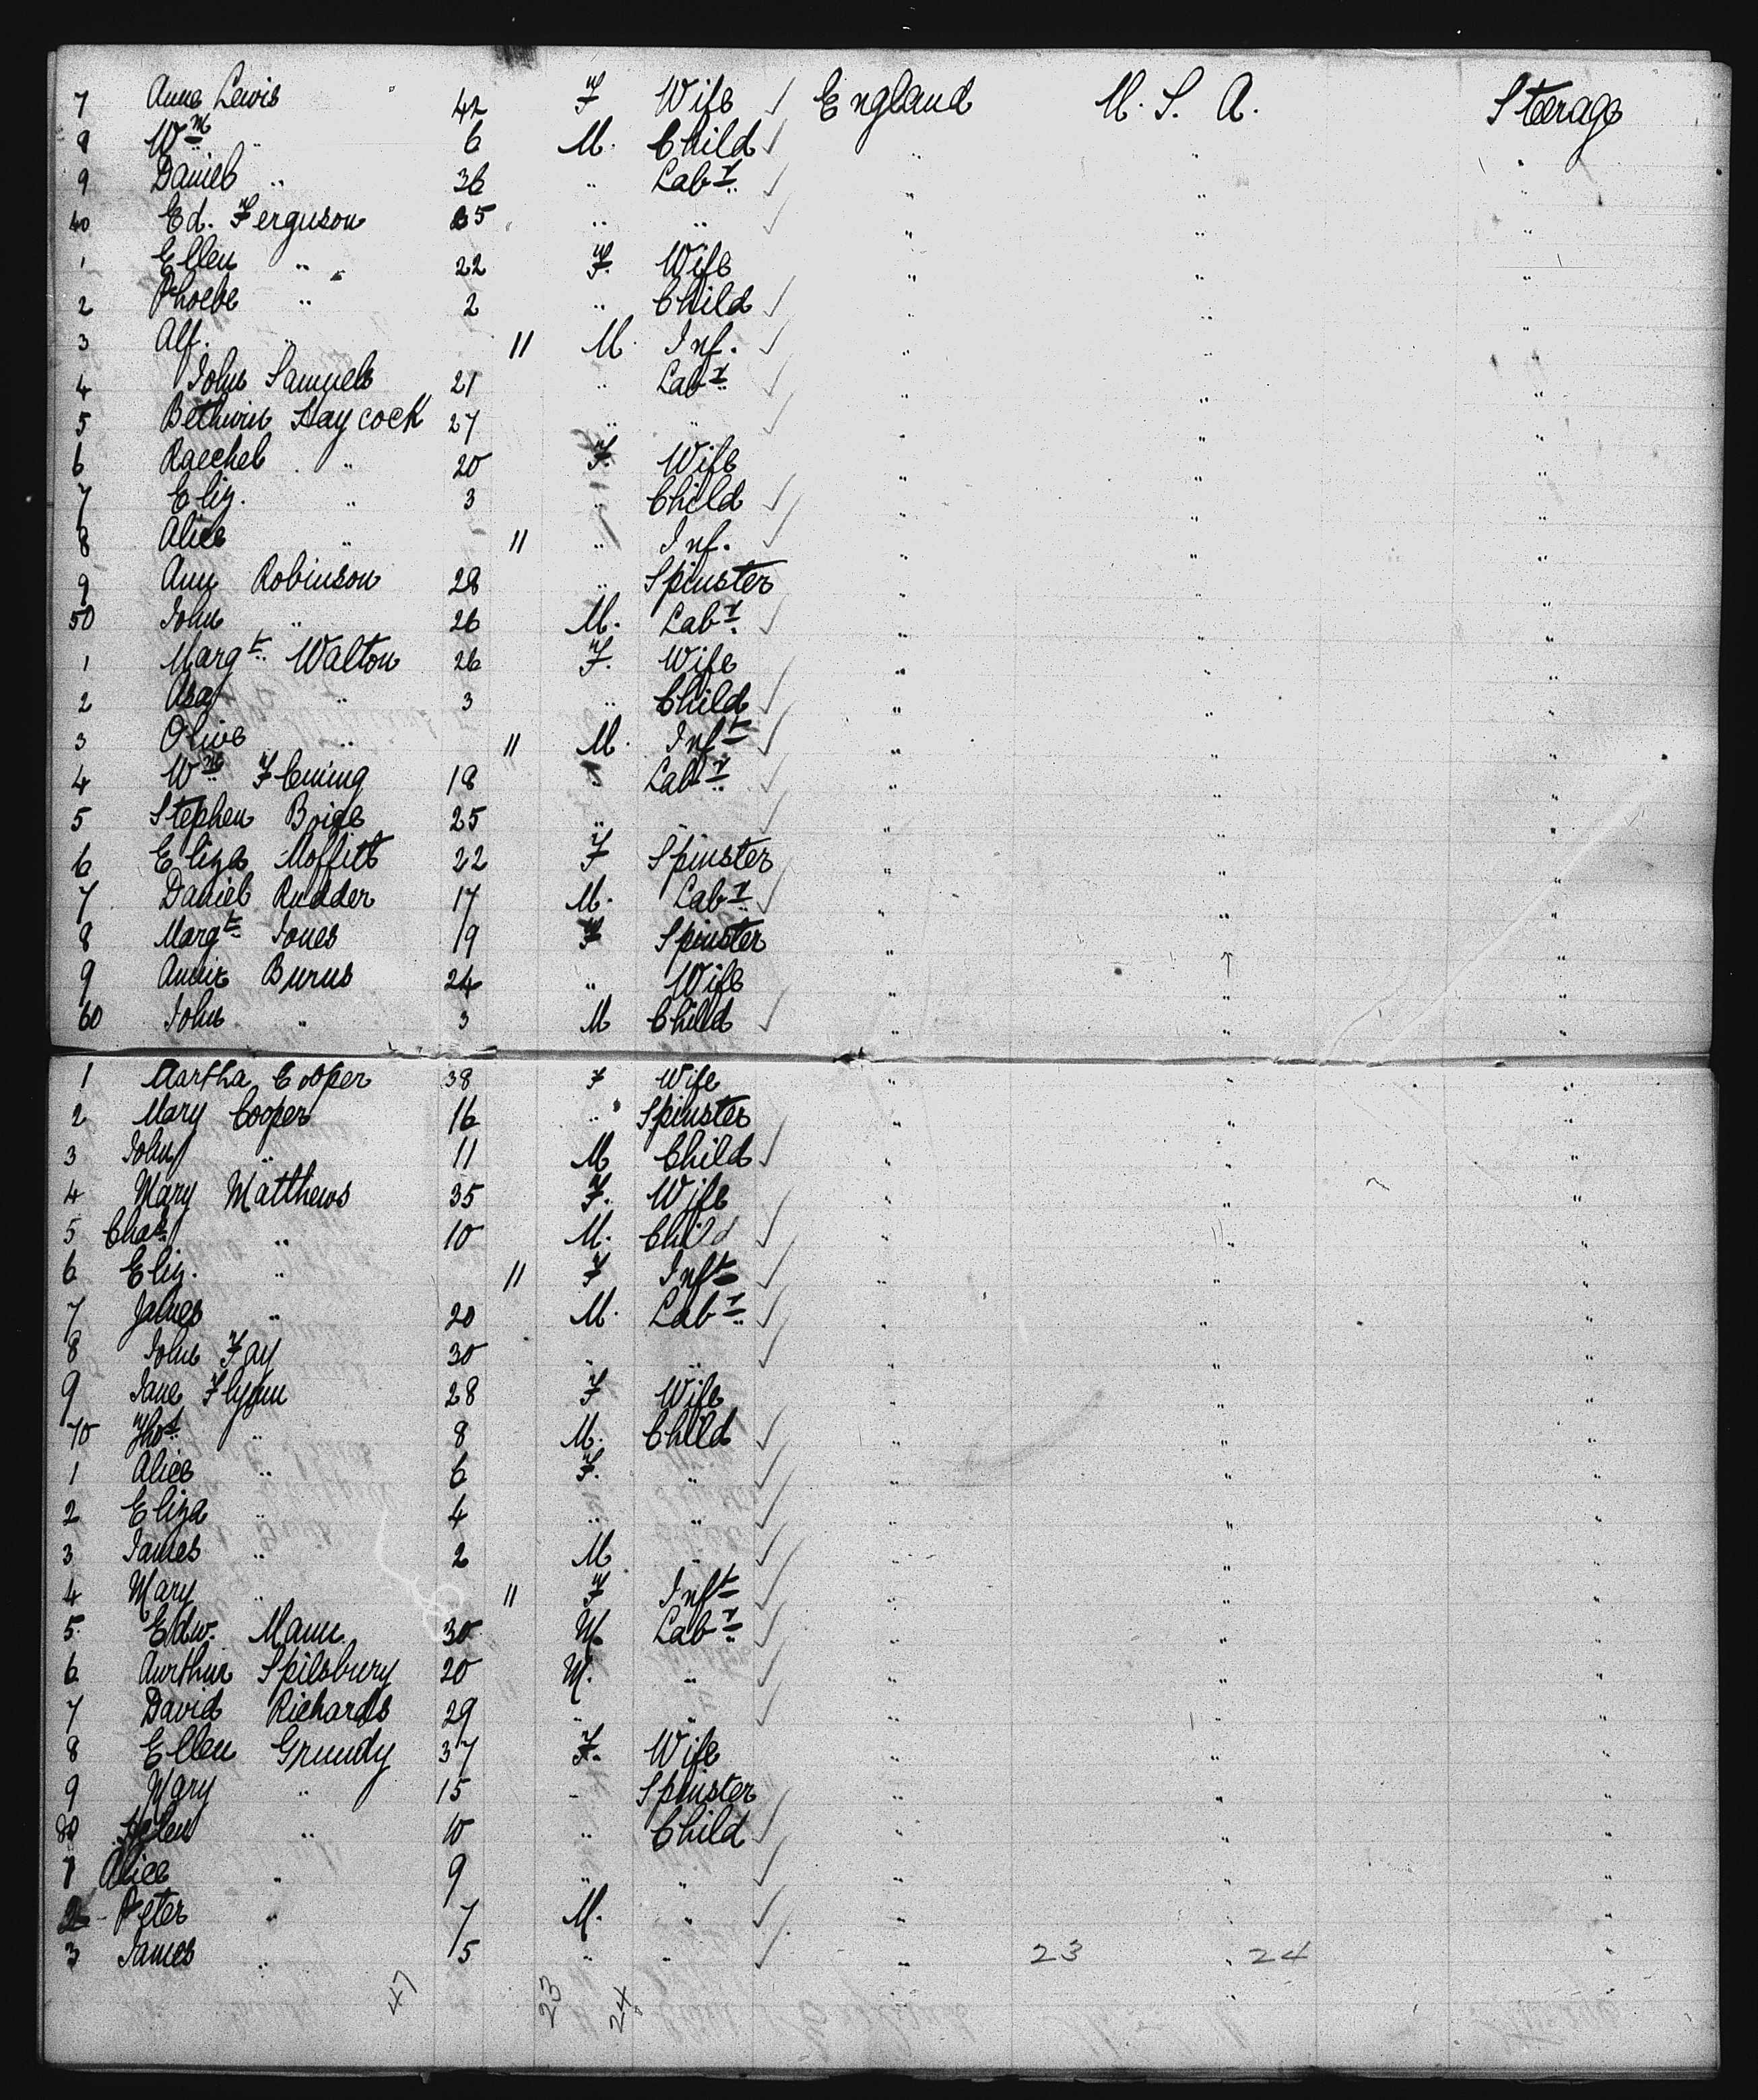 7 Anne Lewis 42 F Wife ✓ England U. S. A. Sterage
8 Wm " 6 M. Child ✓ " " "
9 Daniel " 36 " Labr ✓ " " "
40 Ed. Ferguson 25 " " ✓ " " "
1 Ellen " 22 F. Wife " " "
2 Phoebe " 2 " Child ✓ " " "
3 Alf. " 11 M. Inf. ✓ " " "
4 John Samuels 21 " Labr ✓ " " "
5 Bethuin Haycock 27 " " ✓ " " "
6 Raechel " 20 F. Wife " " "
7 Eliz. " 3 " Child ✓ " " "
8 Alice " 11 " Inf. ✓ " " "
9 Ann Robinson 28 " Spinster " " "
50 John " 26 M. Labr ✓ " " "
1 Margt Walton 26 F. Wife " " "
2 Asa " 3 " Child ✓ " " "
3 Olive " 11 M. Inft ✓ " " "
4 Wm Fleming 18 " Labr ✓ " " "
5 Stephen Boige 25 " " ✓ " " "
6 Eliza Moffitt 22 F Spinster " " "
7 Daniel Rudder 17 M. Labr ✓ " " "
8 Margt Jones 19 F Spinster " " "
9 Annie Burns 24 " Wife " " "
60 John " 3 M Child ✓ " " "
1 Martha Cooper 38 F Wife " " "
2 Mary Cooper 16 " Spinster " " "
3 John " 11 M Child ✓ " " "
4 Mary Matthews 35 F. Wife " " "
5 Chas " 10 M. Child ✓ " " "
6 Eliz. " 11 F Inft ✓ " " "
7 James " 20 M. Labr ✓ " " "
8 John Fay 30 " " ✓ " " "
9 Jane Flynn 28 F Wife " " "
70 Thos " 8 M. Child ✓ " " "
1 Alice " 6 F. " ✓ " " "
2 Eliza " 4 " " ✓ " " "
3 James " 2 M " ✓ " " "
4 Mary " 11 F Inft ✓ " " "
5 Edw. Mann 30 M. Labr ✓ " " "
6 Aurthur Spilsbury 20 M. " ✓ " " "
7 David Richards 29 " " ✓ " " "
8 Ellen Grundy 37 F. Wife " " "
9 Mary " 15 " Spinster " " "
80 Helen " 10 " Child ✓ " " "
1 Alice " 9 " " ✓ " " "
2 Peter " 7 M. " ✓ " " "
3 James " 5 " " ✓ " 23 " 24 "
47 23 24